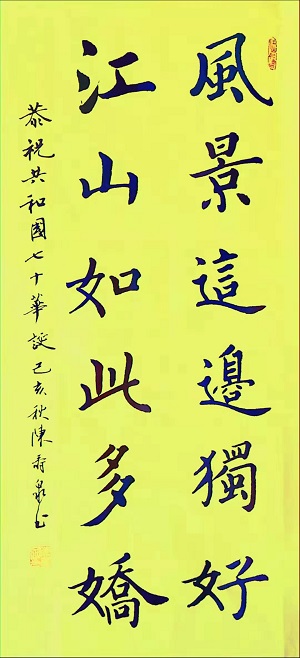 風景這邊獨好
江山如此多嬌
恭祝共和國七十華誕己亥秋陳壽泉书